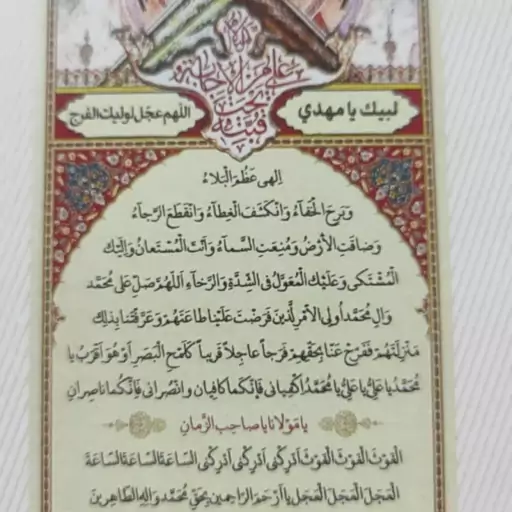 لبيك يا مهدي
اللهم عجل لوليك الفرج
اِلهى عَظُمَ الْبَلاءُ
وَبَرِحَ الْخَفاءُ وَانْكَشَفَ الْغِطاءُ وَانْقَطَعَ الرَّجاءُ
وَضاقَتِ الْاَرْضُ وَمُنِعَتِ السَّماءُ وَاَنْتَ الْمُسْتَعانُ وَاِلَيْكَ
الْمُشْتَكى وَعَلَيْكَ الْمُعَوَّلُ فِى الشِّدَّةِ وَالرَّخاءِ اَللّهُمَّ صَلِّ عَلى مُحَمَّد
وَآلِ مُحَمَّد اُولِى الْاَمْرِ الَّذينَ فَرَضْتَ عَلَيْنا طاعَتَهُمْ وَعَرَّفْتَنا بِذلِكَ
مَنْزِلَتَهُمْ فَفَرِّجْ عَنّا بِحَقِّهِمْ فَرَجاً عاجِلاً قَريباً كَلَمْحِ الْبَصَرِ اَوْ هُوَ اَقْرَبُ يا
مُحَمَّدُ يا عَلِىُّ يا عَلِىُّ يا مُحَمَّدُ اِكْفِيانى فَاِنَّكُما كافِيانِ وَانْصُرانى فَاِنَّكُما ناصِرانِ
يا مَوْلانا يا صاحِبَ الزَّمانِ
الْغَوْثَ الْغَوْثَ الْغَوْثَ اَدْرِكْنى اَدْرِكْنى اَدْرِكْنى السّاعَةَ السّاعَةَ السّاعَةَ
الْعَجَلَ الْعَجَلَ الْعَجَلَ يا اَرْحَمَ الرّاحِمينَ بِحَقِّ مُحَمَّد وَآلِهِ الطّاهِرينَ